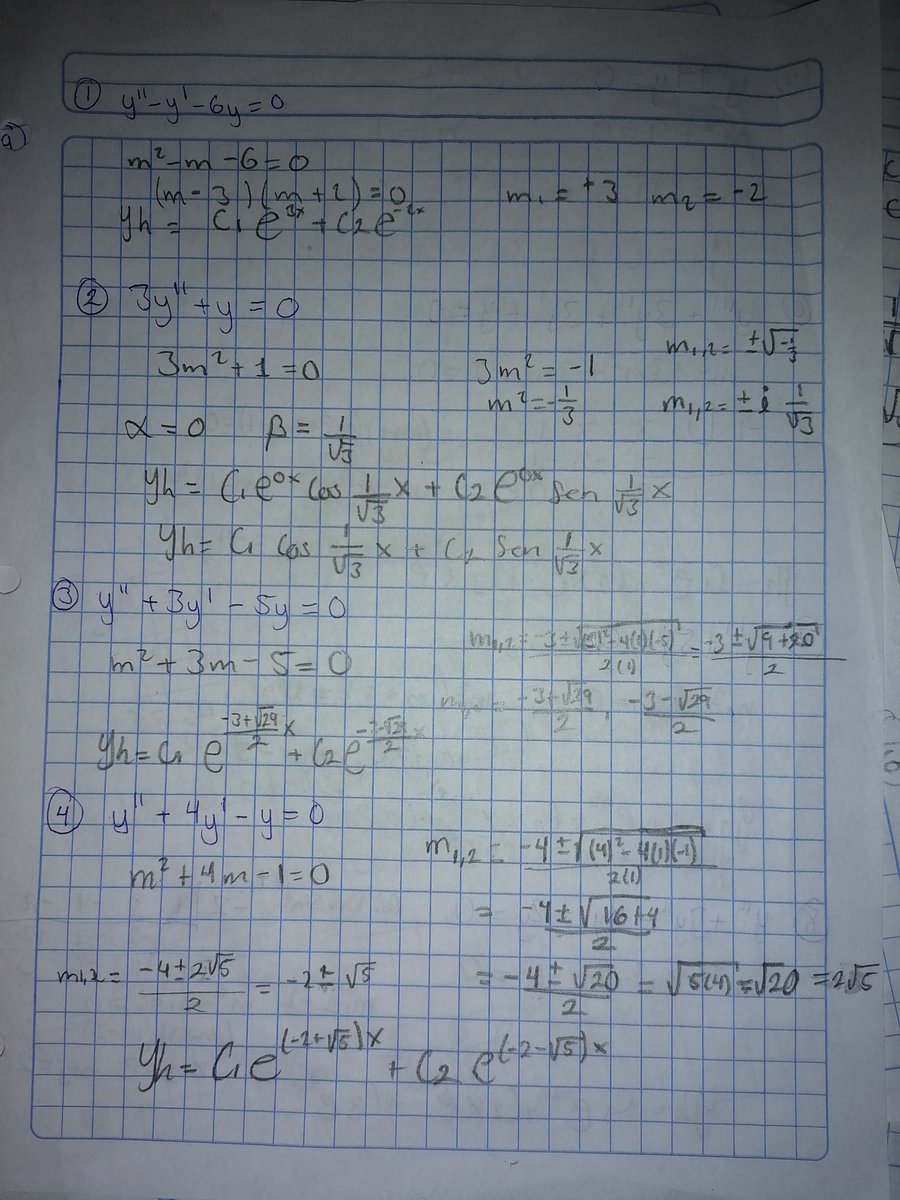 ① y'' - y' - 6y = 0
a)
m² - m - 6 = 0
(m - 3)(m + 2) = 0 m₁ = +3 m₂ = -2
yh = C₁ e^3x + C₂ e^-2x
② 3y'' + y = 0
3m² + 1 = 0 3m² = -1 m₁,₂ = ±√-1/3
m² = -1/3 m₁,₂ = ± i 1/√3
α = 0 β = 1/√3
yh = C₁ e^0x cos 1/√3 x + C₂ e^0x sen 1/√3 x
yh = C₁ cos 1/√3 x + C₂ sen 1/√3 x
③ y'' + 3y' - 5y = 0
m² + 3m - 5 = 0 m₁,₂ = -3 ± √(3)² - 4(1)(-5) / 2(1) = -3 ± √9 + 20 / 2
m₁,₂ = -3 + √29 / 2 , -3 - √29 / 2
yh = C₁ e^(-3+√29 / 2) x + C₂ e^(-3-√29 / 2) x
④ y'' + 4y' - y = 0
m² + 4m - 1 = 0 m₁,₂ = -4 ± √(4)² - 4(1)(-1) / 2(1)
= -4 ± √16 + 4 / 2
m₁,₂ = -4 ± 2√5 / 2 = -2 ± √5 = -4 ± √20 / 2 = √5(4) = √20 = 2√5
yh = C₁ e^(-2+√5)x + C₂ e^(-2-√5)x